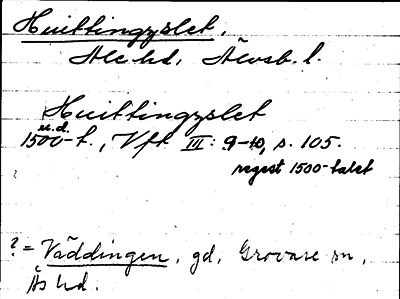 Huittingzslet.
Ale hd, Älvsb. l.
Huittingzslet
u.d.
1500-t., Vft III: 9-10, s. 105.
regest 1500-talet
? = Väddingen, gd, Grovare sn,
Ås hd.